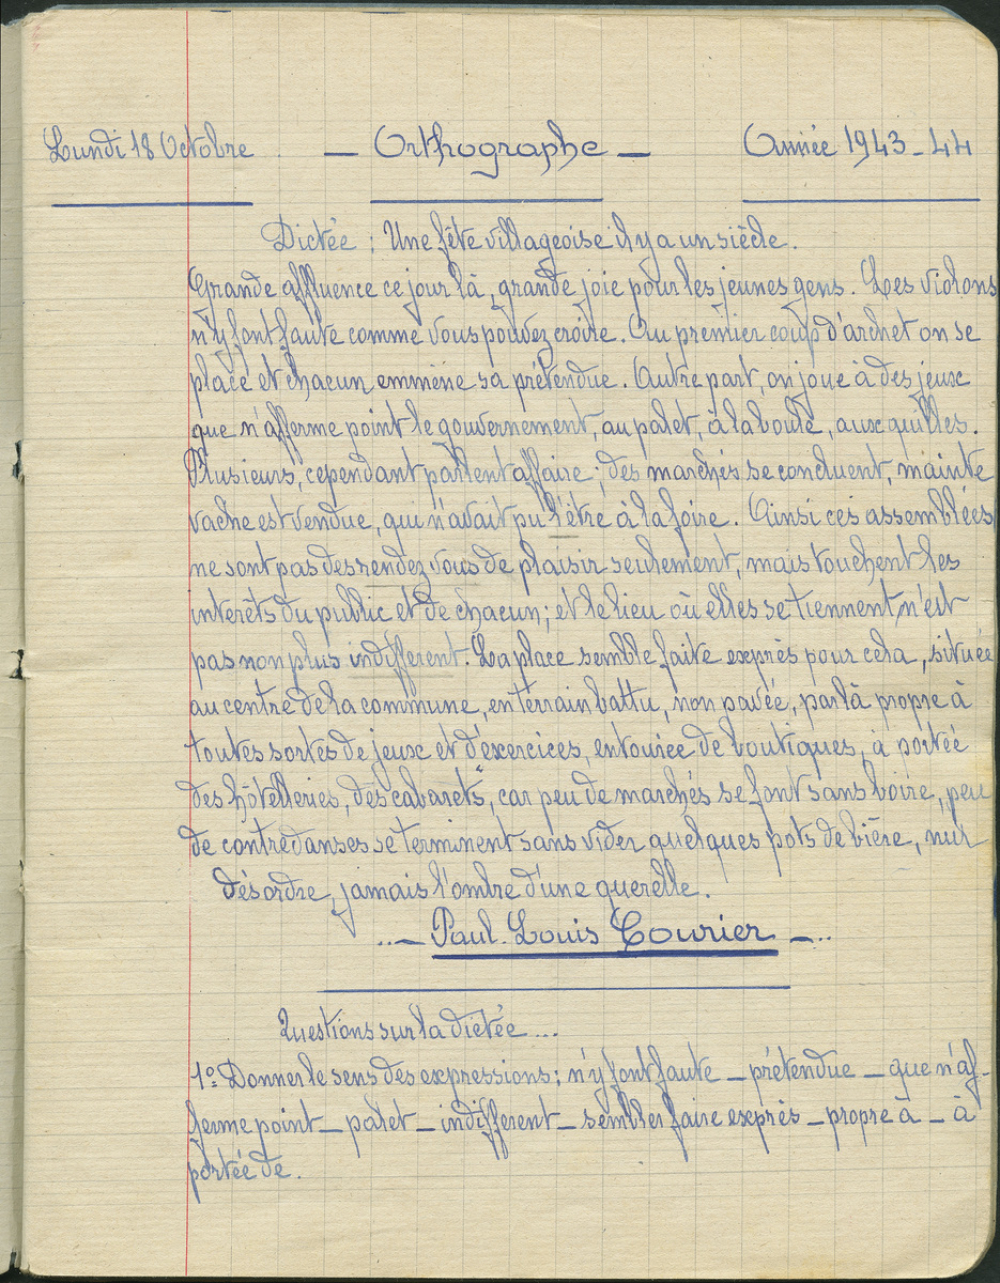 Lundi 18 Octobre — Orthographe — Année 1943-44
Dictée : Une fête villageoise il y a un siècle.
Grande affluence ce jour là, grande joie pour les jeunes gens. Les violons
n'y font faute comme vous pouvez croire. Au premier coup d'archet on se
place et chacun emmène sa prétendue. Autre part, on joue à des jeux
que n'afferme point le gouvernement, au palet, à la boule, aux quilles.
Plusieurs, cependant parlent affaire ; des marchés se concluent, mainte
vache est vendue, qui n'avait pu l'être à la foire. Ainsi ces assemblées
ne sont pas des rendez vous de plaisir seulement, mais touchent les
interêts du public et de chacun ; et le lieu où elles se tiennent n'est
pas non plus indifferent. La place semble faite exprès pour cela, située
au centre de la commune, en terrain battu, non pavée, par là propre à
toutes sortes de jeux et d'exercices, entourée de boutiques, à portée
des hôtelleries, des cabarets, car peu de marchés se font sans boire, peu
de contredanses se terminent sans vider quelques pots de bière, nul
désordre, jamais l'ombre d'une querelle.
..— Paul-Louis Courier —..
Questions sur la dictée ...
1º Donner le sens des expressions : n'y font faute — prétendue — que n'af-
ferme point — palet — indifferent — sembler faire exprès — propre à — à
portée de.